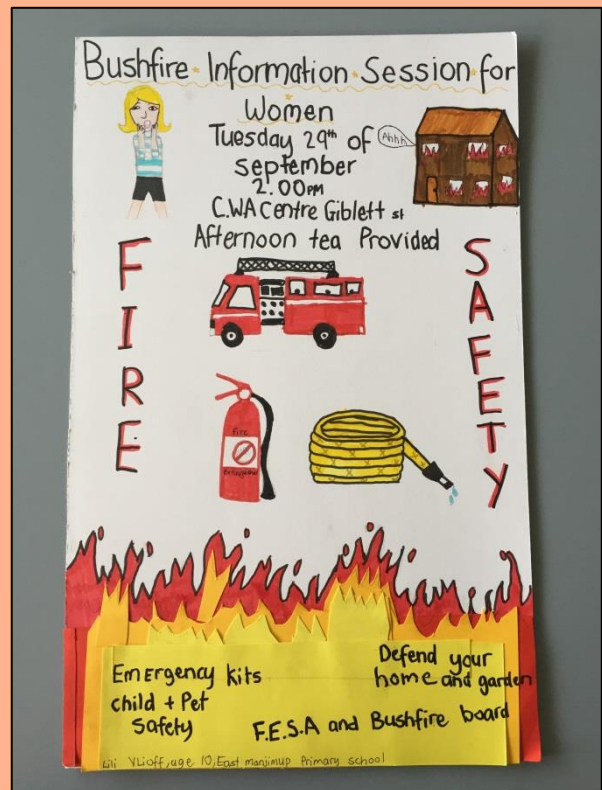 Bushfire Information Session for
Women
Tuesday 29th of
September
2.00pm
C.WA Centre Giblett st
Afternoon tea Provided
Ahhh
FIRE
SAFETY
Fire
Extinguisher
Emergency kits
child + Pet
Safety
Defend your
home and garden
F.E.S.A and Bushfire board
Lili Vlioff, age 10, East manjimup Primary school